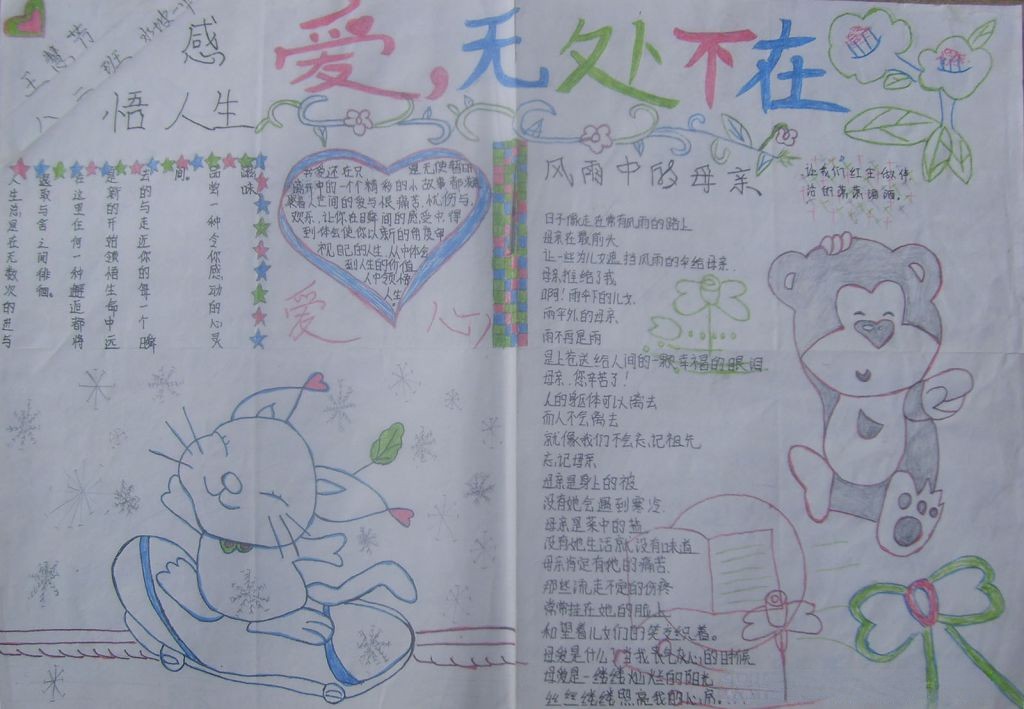 王慧芳
八二班
爱,无处不在
感
悟人生
滋味。
品尝一种令你感动的心灵
间,
去的与走近你的每一个瞬
是新的开始领悟生命中远
在这里任何一种邂逅都将
退取与舍之间徘徊。
人生总是在无数次的进与
亲爱还在只 是无使脑中
离开中的一个个精彩的小故事都凝
聚着人世间的爱与恨痛苦、忧伤与
欢乐,让你在瞬间的感受中,得
到体会使你以新的角度审
视自己的人生,从中体会
到人生的价值
人中领悟
人生
爱 心
风雨中的母亲
让我们红尘做伴
活的潇潇洒洒。
日子像走在常有风雨的路上
母亲在最前头
让一些为儿女遮挡风雨的伞给母亲
母亲推给了我
啊!雨伞下的儿女
雨伞外的母亲
雨不再是雨
是上苍送给人间的一颗幸福的眼泪
母亲,您辛苦了!
人的躯体可以离去
而人不会离去
就像我们不会忘记祖先
忘记母亲
母亲是身上的被
没有她会遇到寒冷
母亲是菜中的盐
没有她生活就没有味道
母亲肯定有她的痛苦
那些流走不定的伤疼
常常挂在她的脸上
和望着儿女们的笑交织着。
母爱是什么?当我最灰心的时候
母爱是一缕缕灿烂的阳光
丝丝缕缕照亮我的心房。